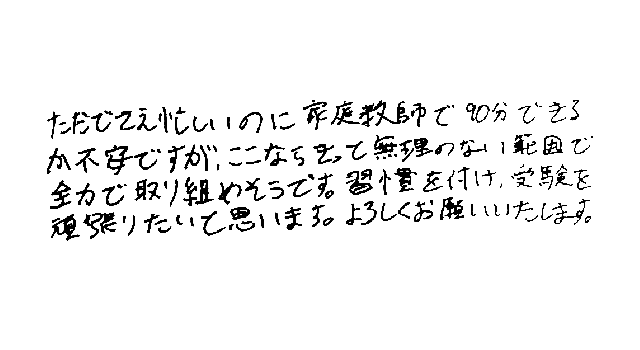 ただでさえ忙しいのに家庭教師で90分できる
か不安ですが、ここならきっと無理のない範囲で
全力で取り組めそうです。習慣を付け、受験を
頑張りたいて思います。よろしくお願いいたします。